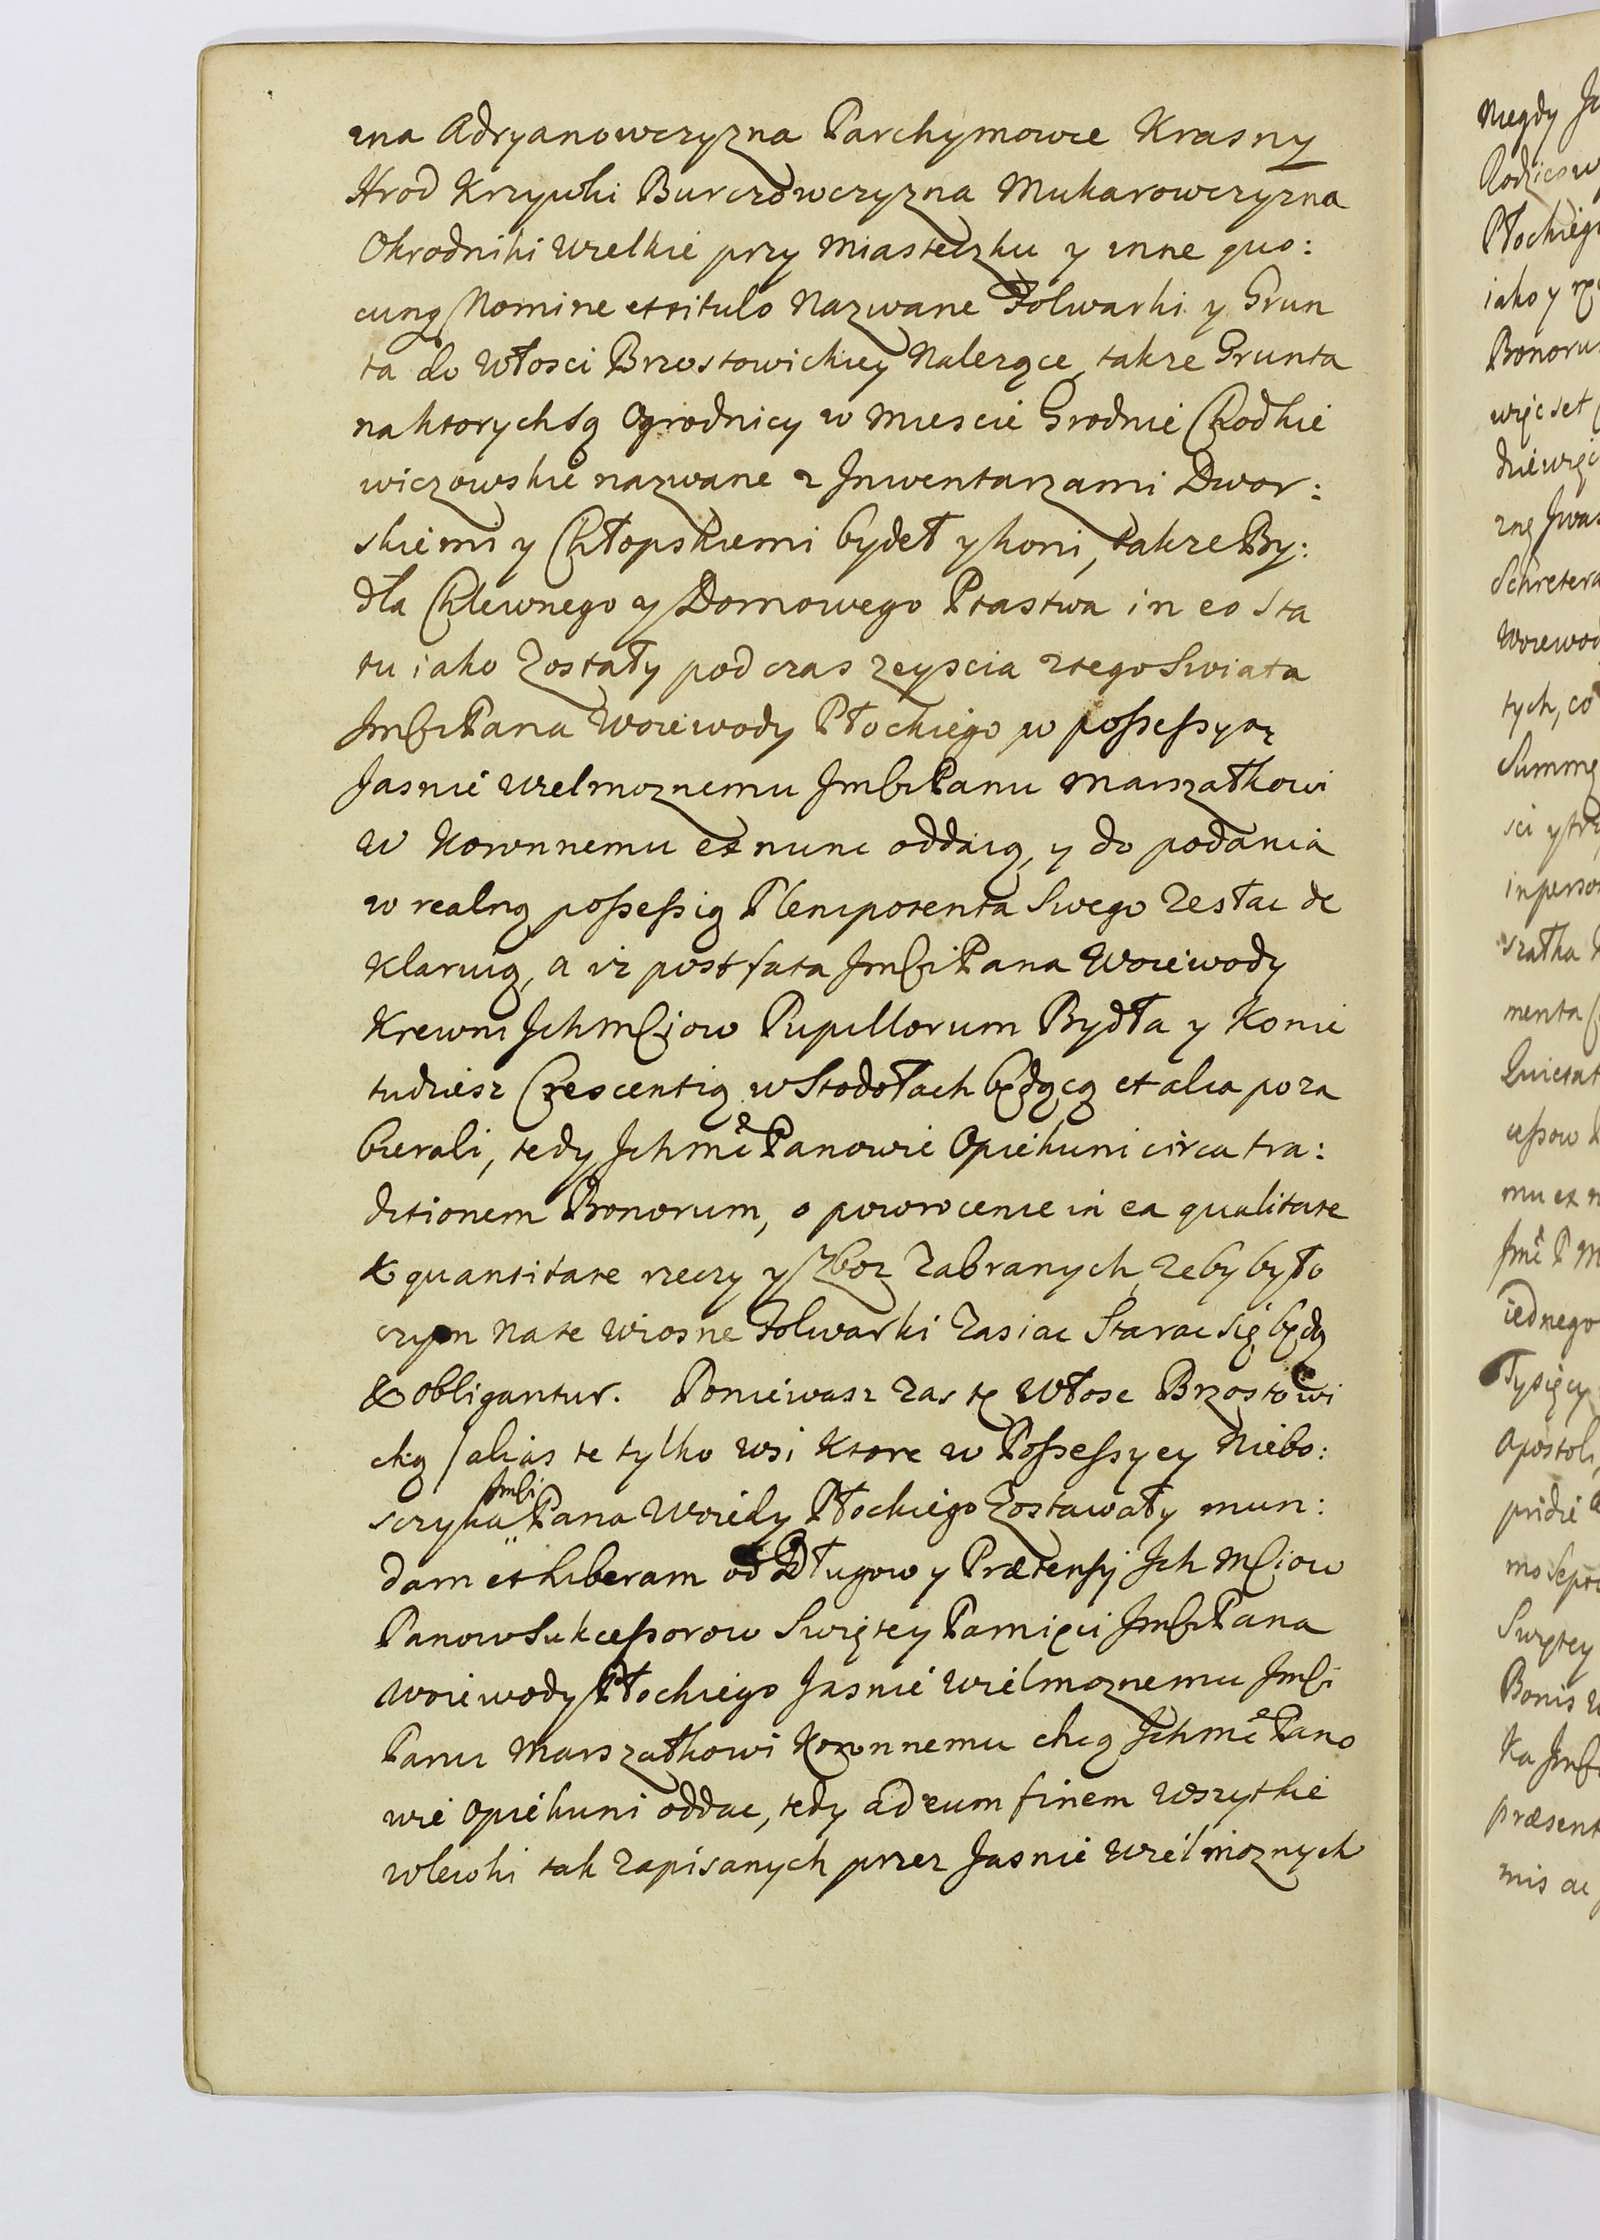 zna Adryanowczyzna Parchymowce Krasny
Hrod Krzywki Burczowczyzna Mukarowczyzna
Ohrodniki Wielkie przy Miasteczku y inne quo:
cunq Nomine et titulo Nazwane Folwarki y Grun
ta do Włosci Brzostowickiey Nalezące, takze Grunta
na ktorych są Ogrodnicy w Miescie Grodnie Chodkie
wiczowskie nazwane z Jnwentarzami Dwor:
skiemi y Chłopskiemi bydeł y koni, takze By:
dła Chlewnego y Domowego Ptastwa in eo sta
tu iako Zostały pod czas zeyscia z tego Swiata
JmSci Pana Woiewody Płockiego w possessyą
Jasnie Wielmoznemu JmSci Panu Marszałkowi
W Koronnemu ex nunc oddaią, y do podania
w realną possessią Plenipotenta Swego Zesłac de
klaruią, a iz post fata JmSci Pana Woiewody
Krewni JchmSciow Pupillorum Bydła y Konie
tudziesz Crescentią w Stodołach będącą et alia poza
bierali, tedy Jchmć Panowie Opiekuni circa tra:
ditionem Bonorum, o powrocenie in ea qualitate
& quantitate rzeczy y Zboz Zabranych, zeby było
czym na te wiosne Folwarki Zasiac Starac się będą
& obligantur. Poniewasz zas tę Włosc Brzostowi
cką /alias te tylko wsi ktore w Possessyey Niebo:
szczyka JmSci Pana Woiedy Płockiego Zostawały mun:
dam et liberam od Długow y Prætensyi JchmSciow
Panow Sukcessorow Swiętey Pamięci JmSci Pana
Woiewody Płockiego Jasnie Wielmoznemu JmSci
Panu Marszałkowi Koronnemu chcą Jchmć Pano
wie Opiekuni oddac, tedy ad eum finem Wszytkie
wlewki tak Zapisanych przez Jasnie Wielmoznych